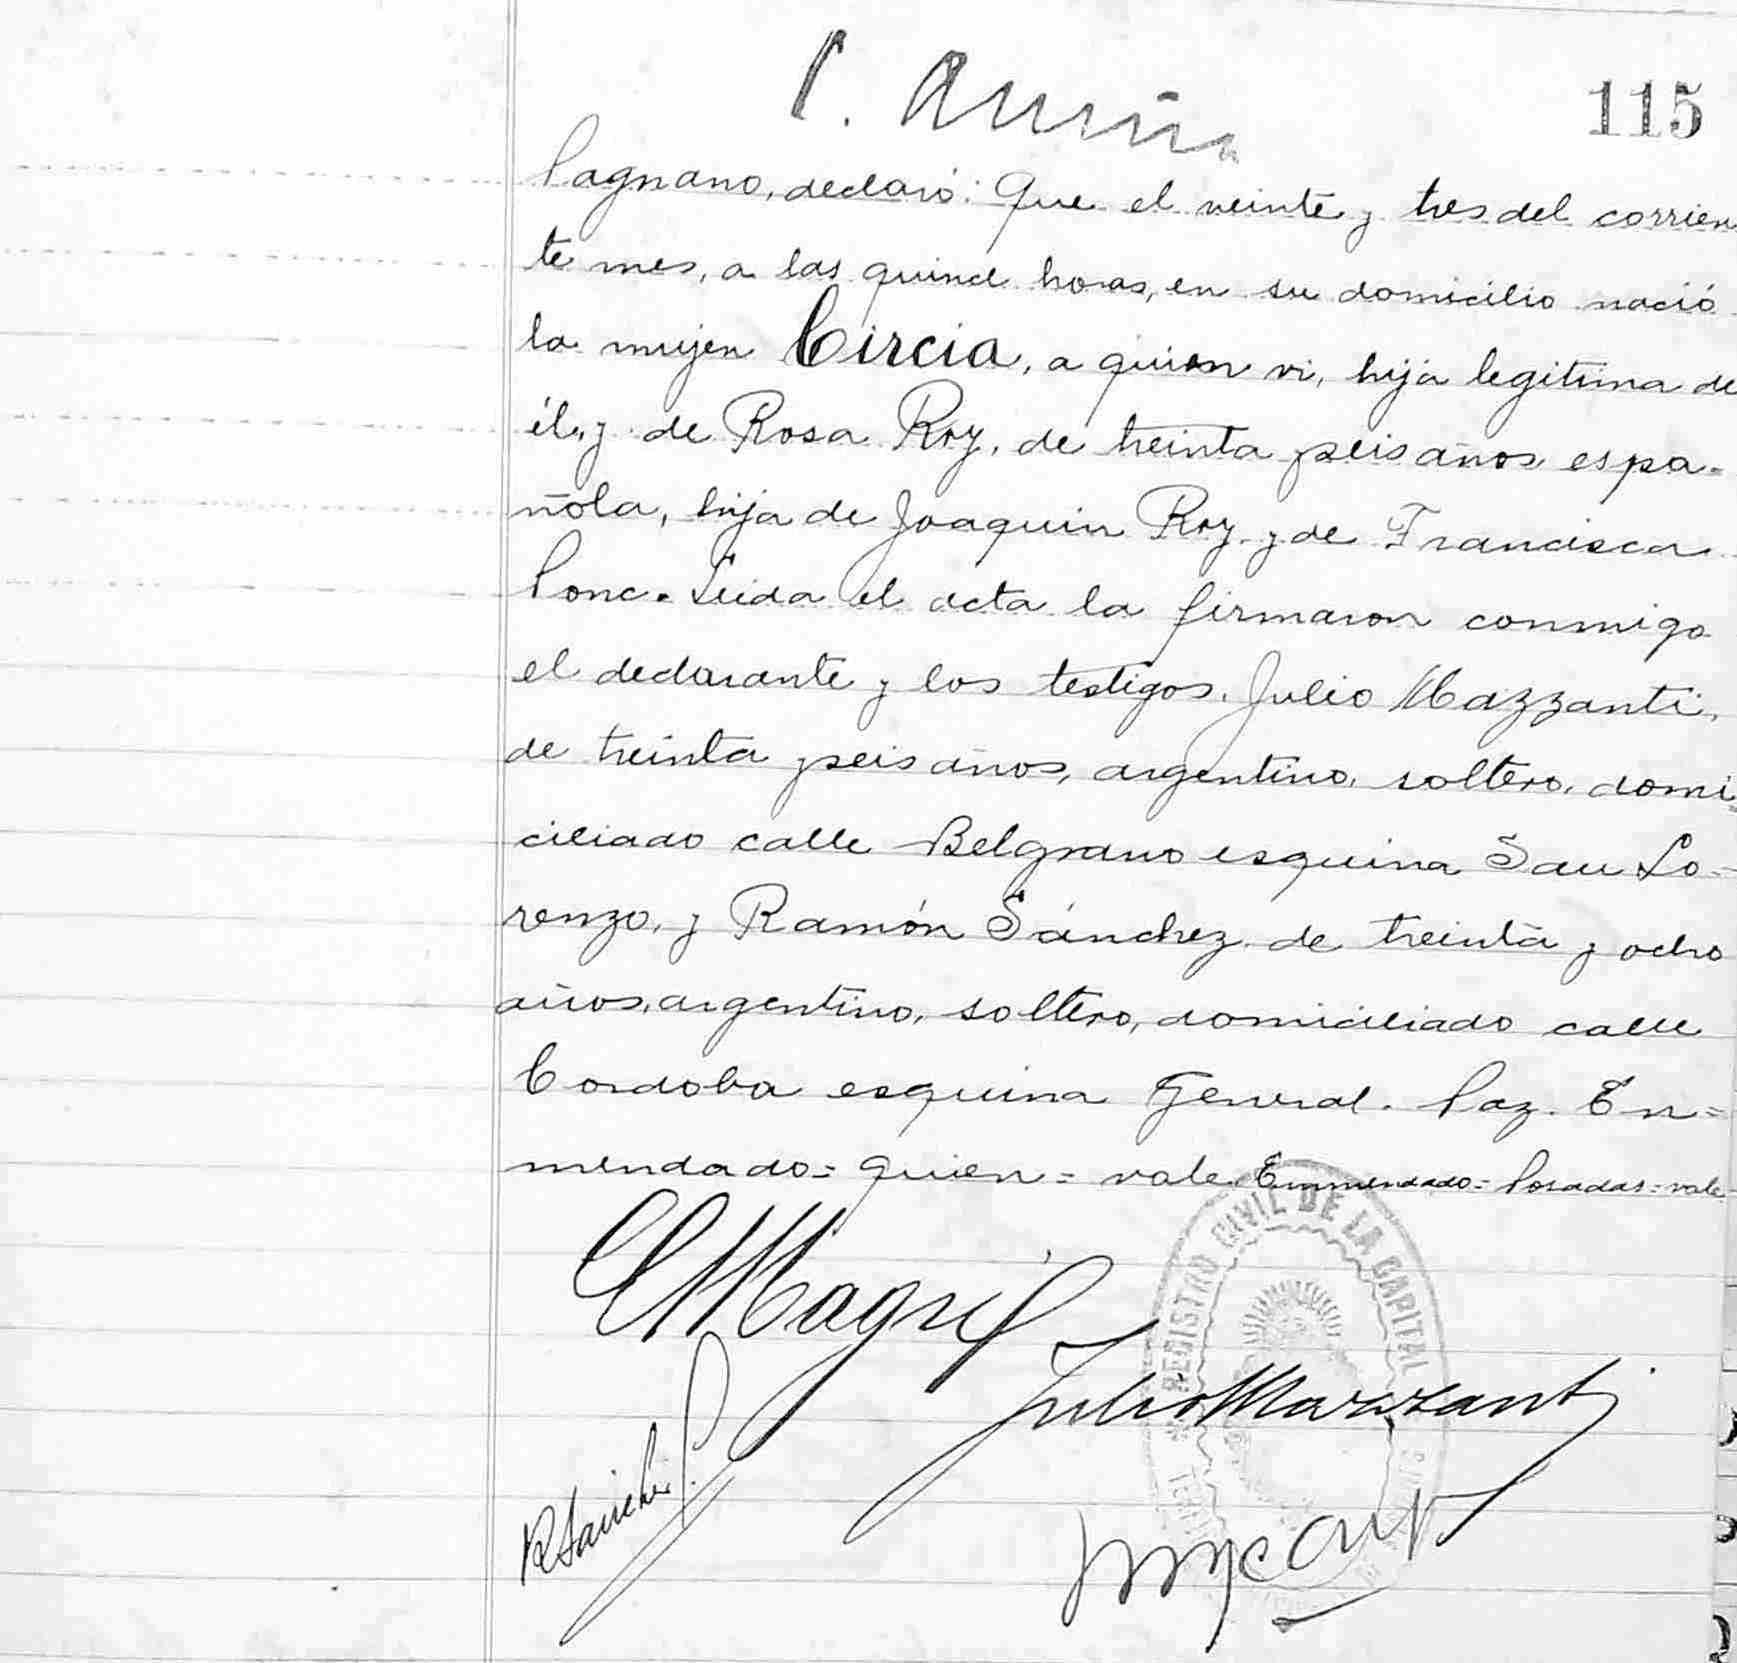 115
Pagnano, declaró: Que el veinte y tres del corrien
te mes, a las quince horas, en su domicilio nació
la mujer Circia, a quien vi, hija legitima de
él, y de Rosa Roy, de treinta y seis años, espa-
ñola, hija de Joaquin Roy y de Francisca
Ponc. Leida el acta la firmaron conmigo
el declarante y los testigos. Julio Mazzanti,
de treinta y seis años, argentino, soltero, domi
ciliado calle Belgrano esquina San Lo-
renzo, y Ramón Sánchez de treinta y ocho
años, argentino, soltero, domiciliado calle
Cordoba esquina General. Paz. En=
mendado= quien= vale. Enmendado= Posadas= vale
REGISTRO CIVIL DE LA CAPITAL
Julio Mazzanti
R Sanchez